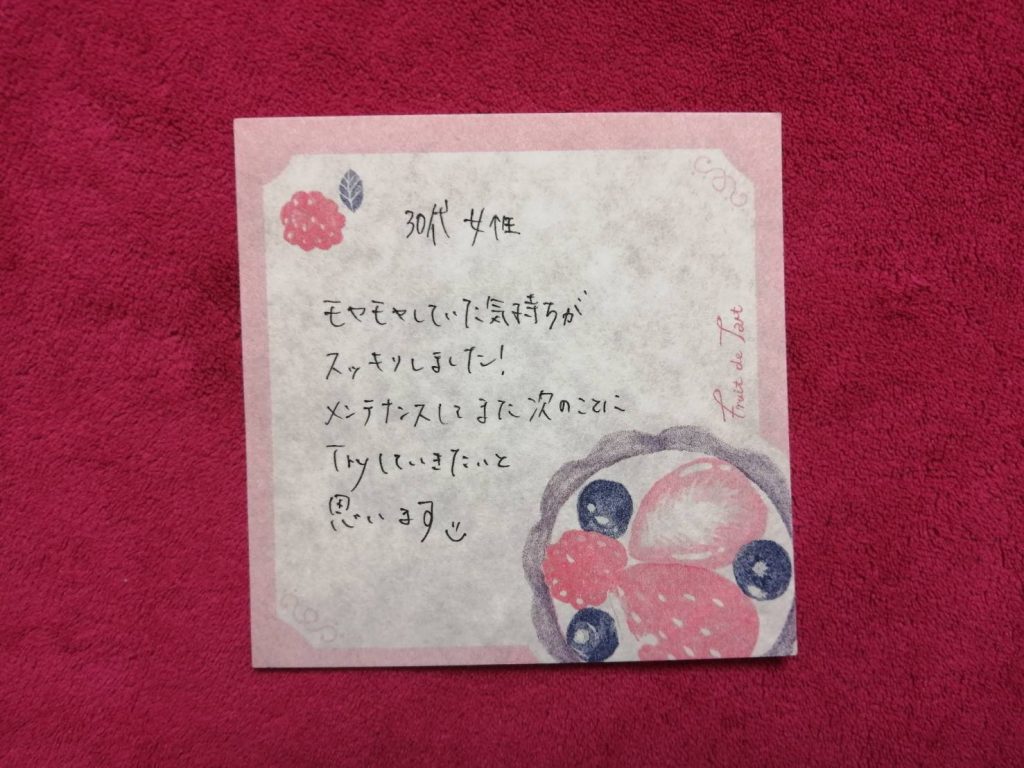 30代 女性
モヤモヤしていた気持ちが
スッキリしました!
メンテナンスしてまた次のことに
Tryしていきたいと
思います
Fruit de Tart